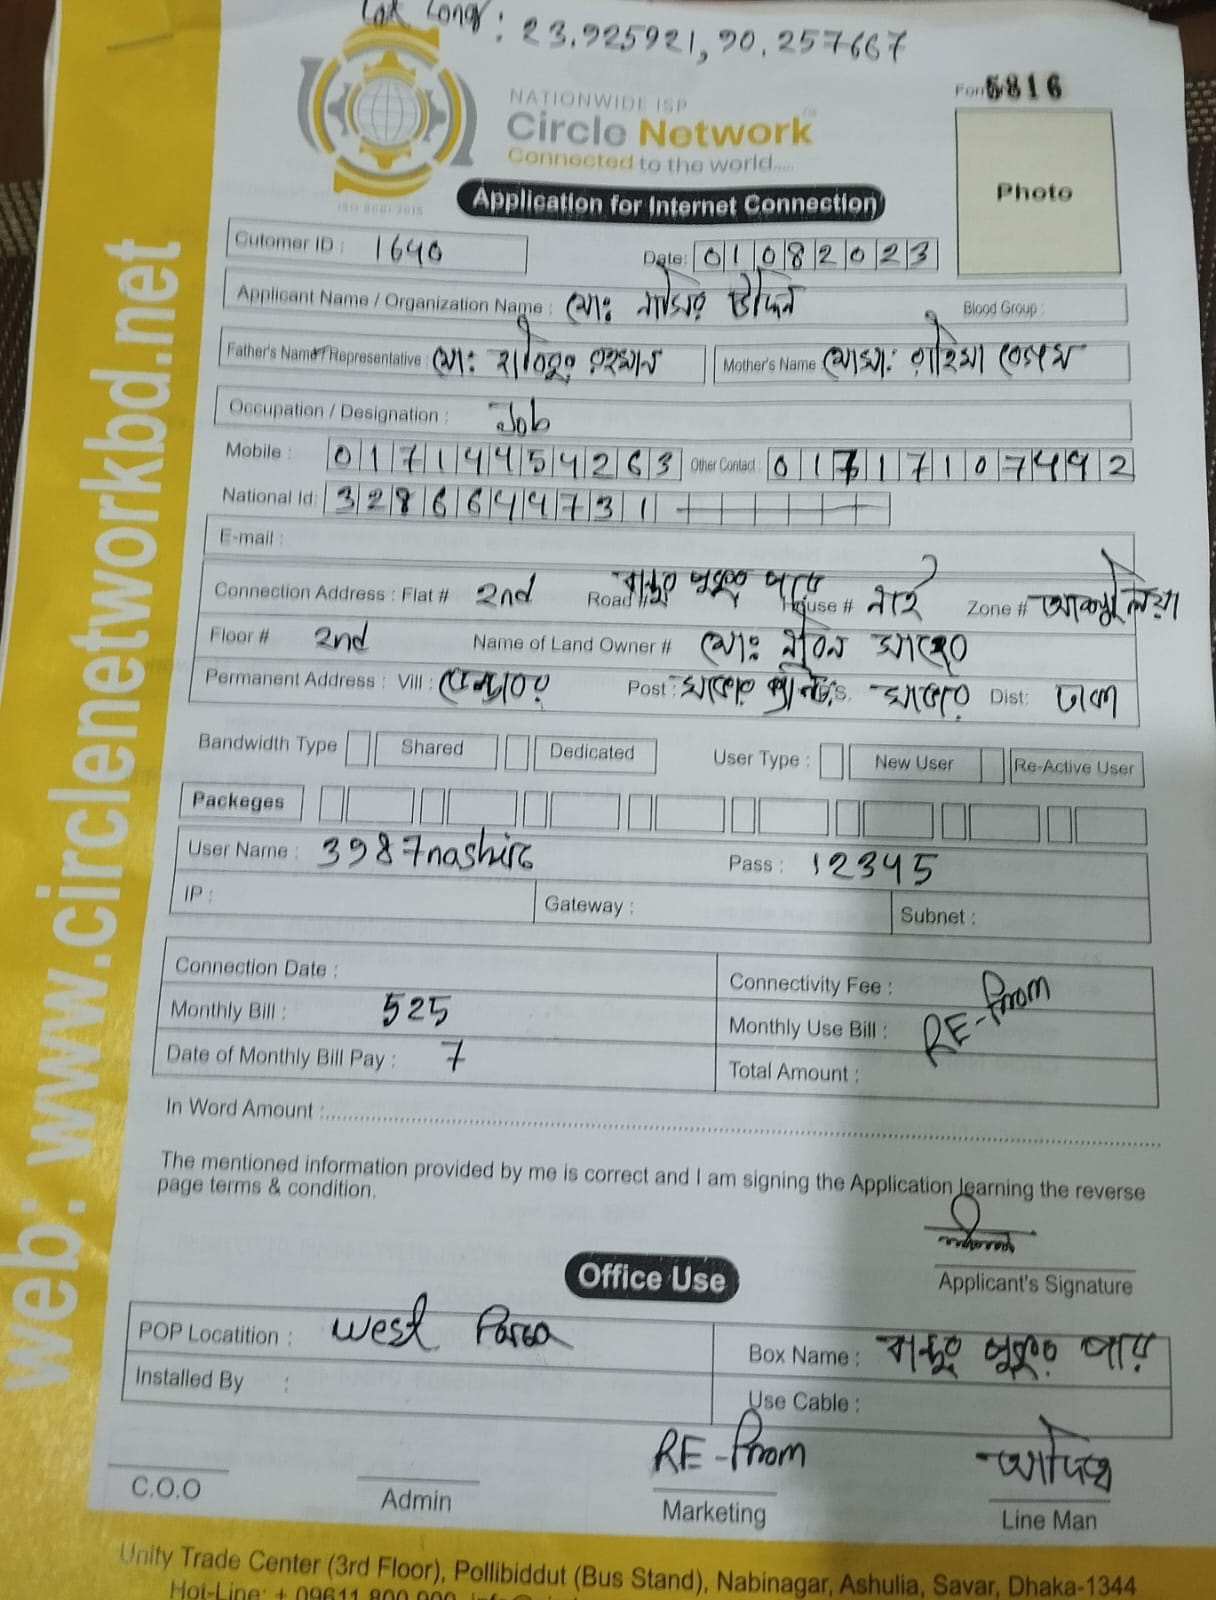 Lat Long: 23.925921, 90.257667
NATIONWIDE ISP
Circle Network
Connected to the world.....
ISO 9001:2015
5816
Photo
Application for Internet Connection
Cutomer ID : 1640
Date: 01082023
Applicant Name / Organization Name : মোঃ নাসির উদ্দিন
Blood Group :
Father's Name / Representative : মোঃ হাবিবুর রহমান
Mother's Name মোসাঃ রহিমা বেগম
Occupation / Designation : Job
Mobile : 01714454263 Other Contact : 01717107442
National Id: 3286644731
E-mail :
Connection Address : Flat # 2nd Road # বান্দুর পুকুর পাড় House # নাই Zone #
Floor # 2nd Name of Land Owner # মোঃ
Permanent Address : Vill : Post : সাভার P.S. সাভার Dist: ঢাকা
Bandwidth Type Shared Dedicated User Type : New User Re-Active User
Packeges
User Name : 3987nashirc Pass : 12345
IP : Gateway : Subnet :
Connection Date : Connectivity Fee :
Monthly Bill : 525 Monthly Use Bill : RE-from
Date of Monthly Bill Pay : 7 Total Amount :
In Word Amount :
The mentioned information provided by me is correct and I am signing the Application learning the reverse
page terms & condition.
Applicant's Signature
Office Use
POP Locatition : West Parea Box Name : বান্দুর পুকুর পাড়
Installed By : Use Cable :
RE-from
C.O.O Admin Marketing Line Man
Unity Trade Center (3rd Floor), Pollibiddut (Bus Stand), Nabinagar, Ashulia, Savar, Dhaka-1344
Hot-Line: + 09611 800 900,
web: www.circlenetworkbd.net